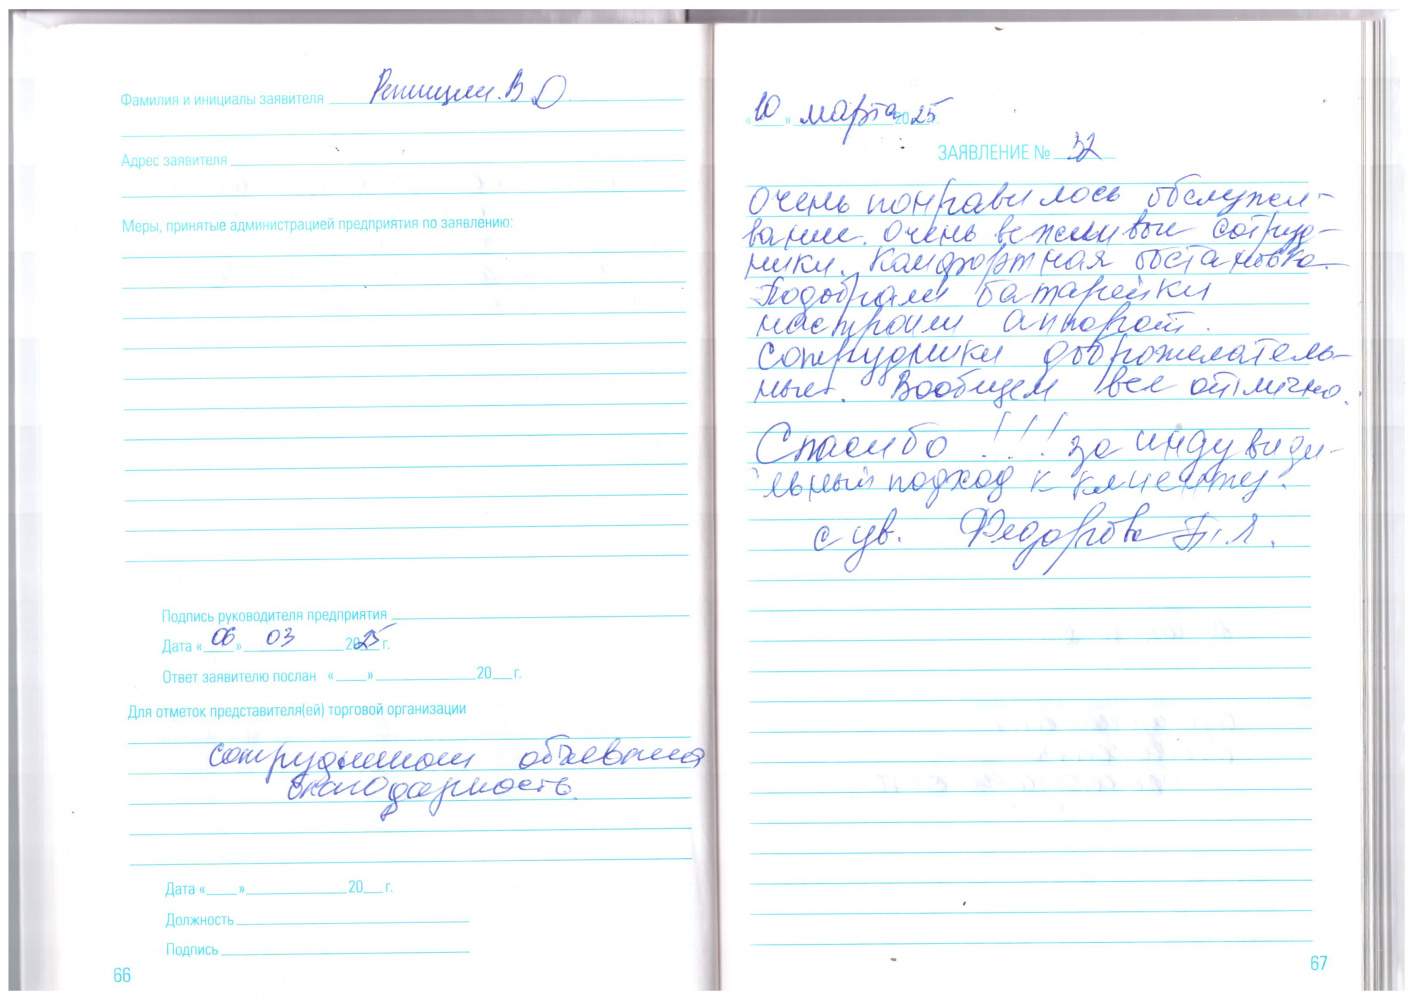 Фамилия и инициалы заявителя Репицин. В О
Адрес заявителя
Меры, принятые администрацией предприятия по заявлению:
Подпись руководителя предприятия
Дата «06» 03 2025 г.
Ответ заявителю послан « » 20 г.
Для отметок представителя(ей) торговой организации
сотрудникам объевлина
благодарность.
Дата « » 20 г.
Должность
Подпись
66
«10» марта 2025
ЗАЯВЛЕНИЕ № 32
Очень понравилось обслужи-
вание. Очень вежливые сотруд-
ники. Комфортная обстановка.
Подобрали батарейки
настроили аппарат.
Сотрудники доброжелатель-
ные. Вообщем все отлично.
Спасибо !!! за индувиди-
льный подход к клиенту.
с ув. Федорова П.Я.
67